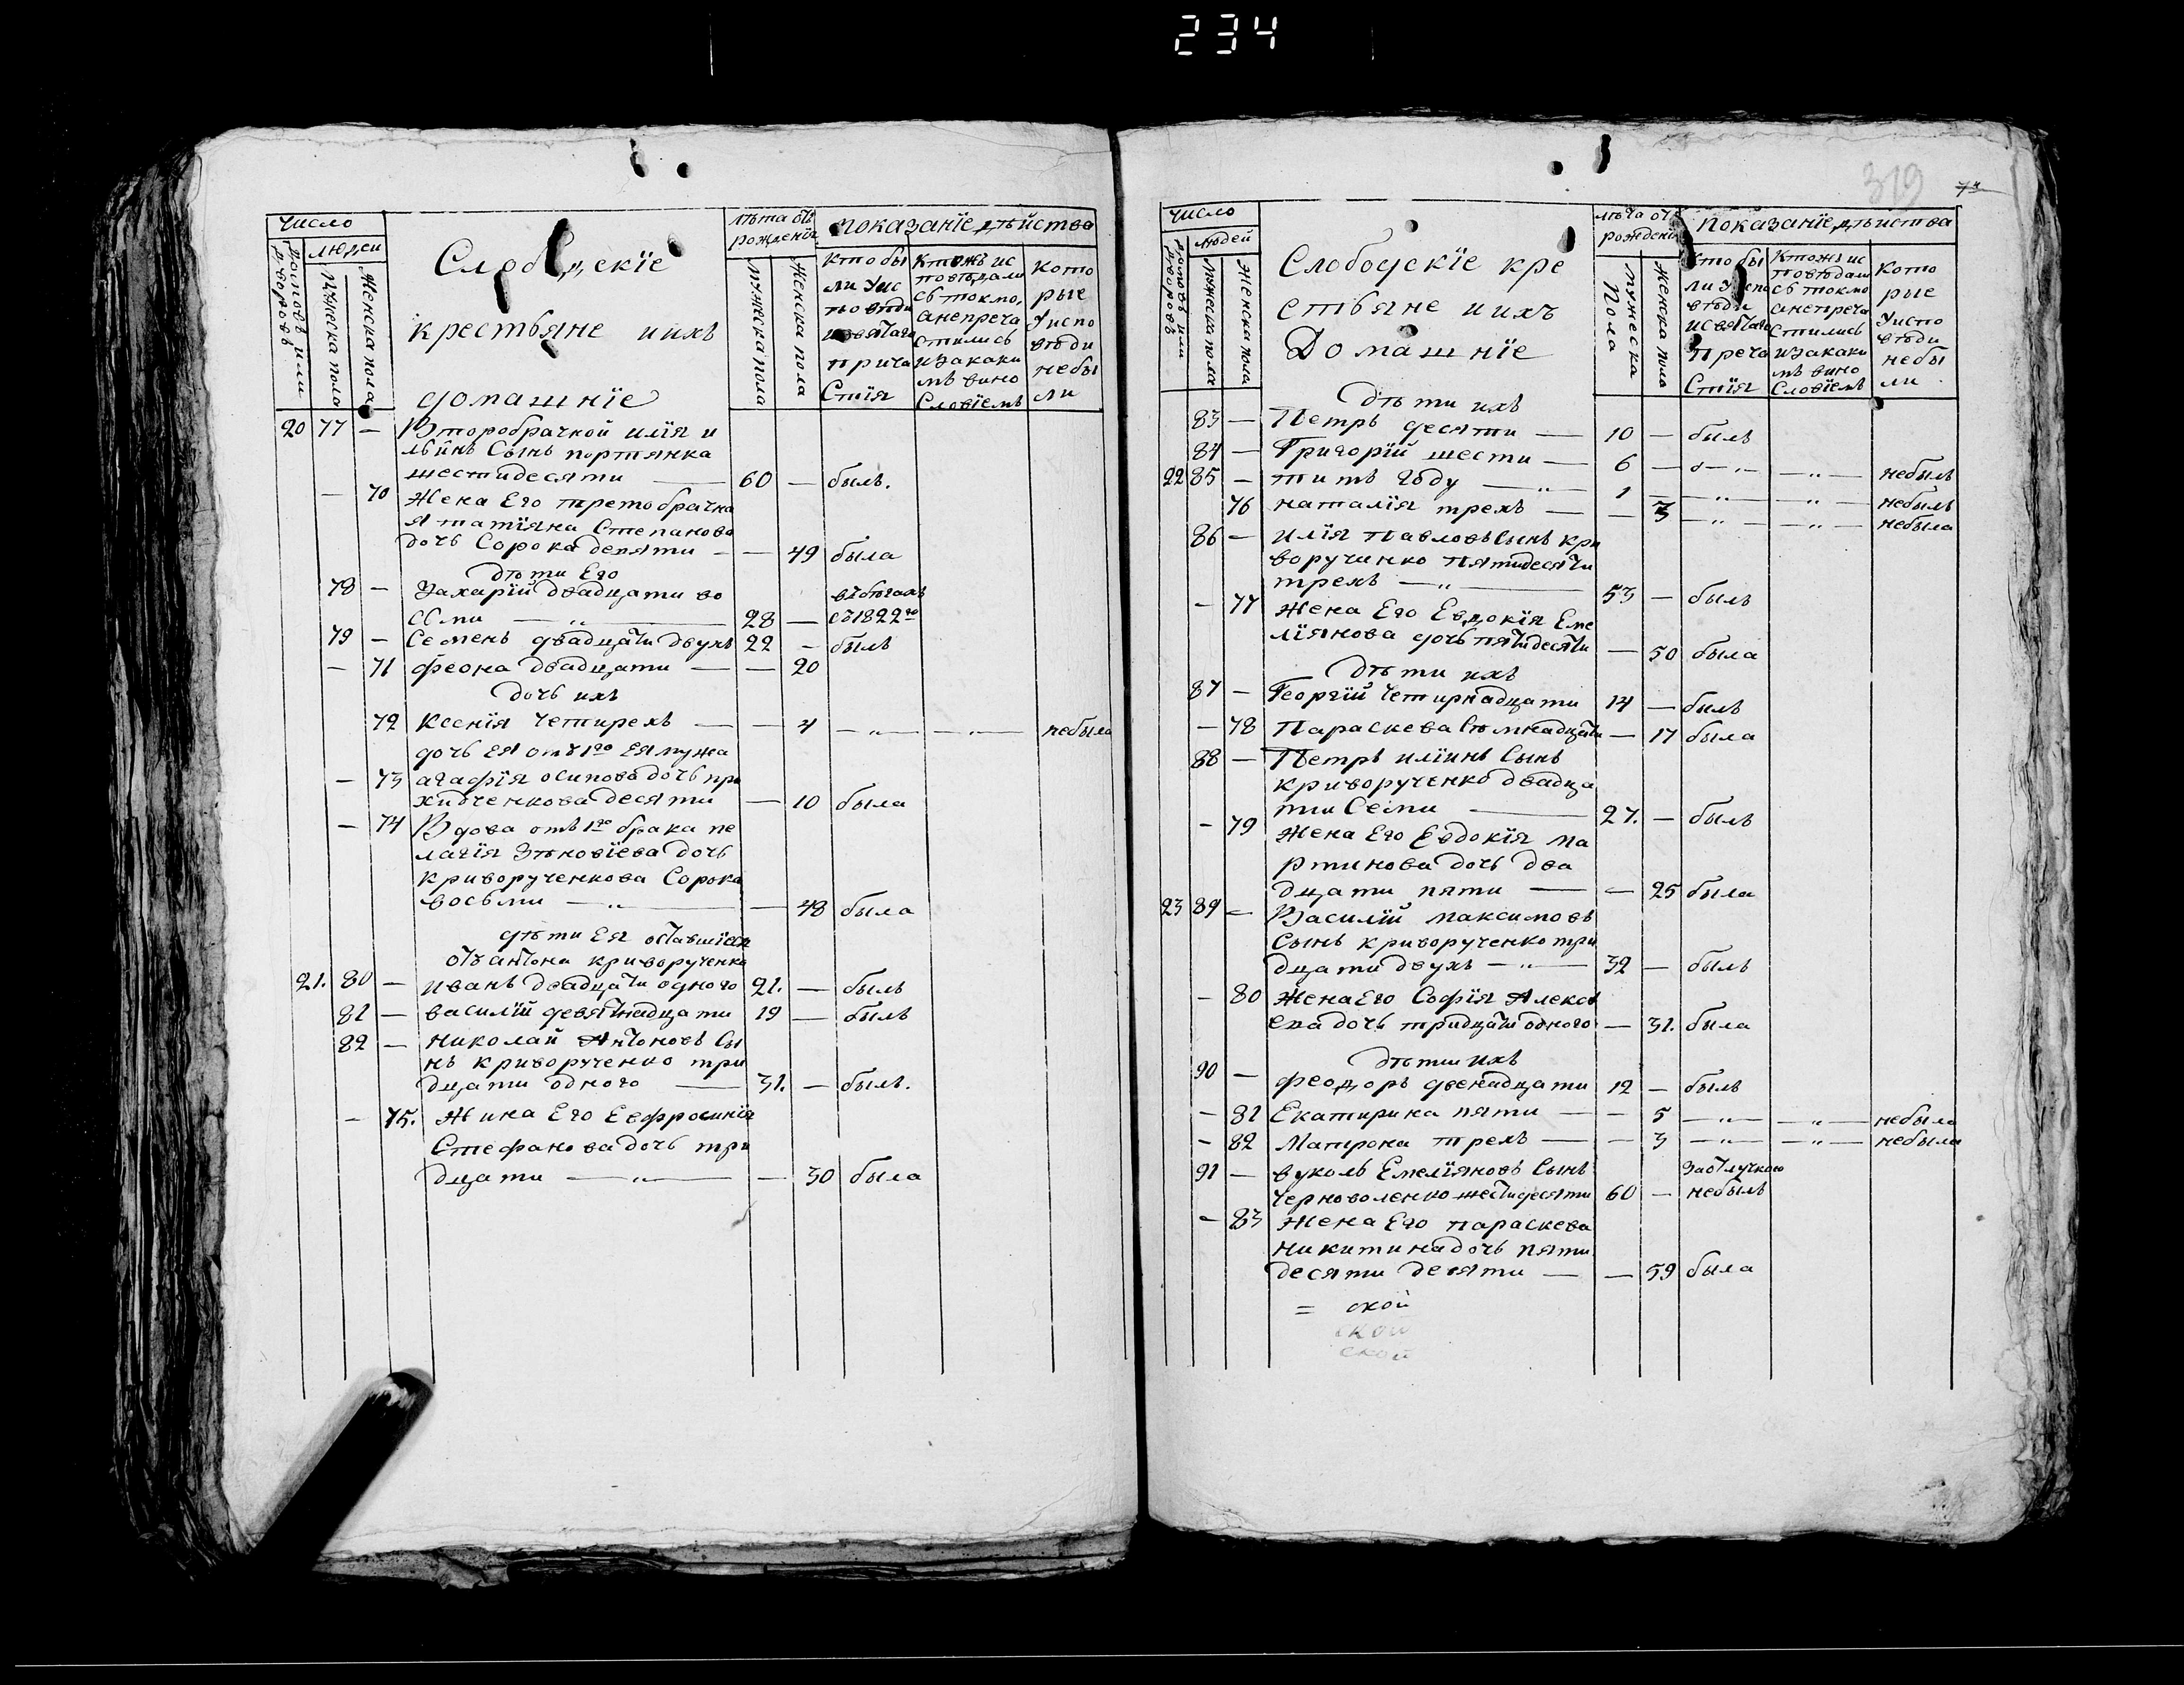 234
число
людей
домовъ или дворовъ
мужеска пола
Женска пола
Слободскїе
крестьяне и ихъ
домашнїе
лѣта отъ рожденїя
мужеска пола
Женска пола
показанїе дѣйства
кто бы
ли у ис
повѣди
и святаго
прича
стїя
Ктожъ ис
повѣдали
сь токмо,
а не прича
стились
и за каки
мъ вино
словїемъ
кото
рые
у испо
вѣди
небы
ли
20 77 — Второбрачной илїя и
льинъ Сынъ портянка
шестидесяти — 60 — былъ.
— 70 Жена Его третобрачна
я татїяна Степанова
дочь Сорока девяти — — 49 была
дѣти Его
78 — Захарїй двадцати во въ бѣгахъ
сми — „ — 28 — съ 1822го
79 — Семенъ двадцати двухъ 22 — былъ
— 71 феона двадцати — — 20
дочь ихъ
72 Ксенїя четирехъ — — 4 — „ — — „ — небыла
дочь Ея отъ 1го Ея мужа
— 73 агафїя осипова дочь при
хидченкова десяти — 10 была
— 74 Вдова отъ 1го брака пе
лагїя Зѣновїева дочь
криворученкова Сорока
восьми — „ — — 48 была
дѣти Ея оставшїеся
отъ антона криворученко
21. 80 — иванъ двадцати одного 21. — былъ
81 — василїй девятнадцати 19 — былъ
82 — николай Антоновъ Сы
нъ криворученко три
дцати одного — 31. — былъ.
— 75. Жина Его Евфросинїя
Стефанова дочь три
дцати — „ — — 30 была
319
число
людей
домовъ или дворовъ
мужеска пола
Женска пола
Слободскїе кре
стьяне и ихъ
Домашнїе
лѣта отъ рожденїя
мужеска Пола
Женска пола
показанїе дѣйства
кто бы
ли у испо
вѣди
и святаго
преча
стїя
Ктожъ ис
повѣдали
сь токмо
а не преча
стились
и за каки
мъ вино
словїемъ
кото
рые
у испо
вѣди
небы
ли
дѣти ихъ
83 — Петръ десяти — 10 — былъ
84 — Григорїй шести — 6 — „ — — „ — небылъ
22 85 — титъ году — „ — 1 — „ — — „ — небылъ
76 наталїя трехъ — — 3 — „ — — „ — небыла
86 — илїя Павловъ Сынъ кри
воручинко пятидесяти
трехъ — „ — 53 — былъ
— 77 Жена Его Евдокїя Еме
лїянова дочь пятидесяти — 50 была
дѣти ихъ
87 — Георгїй четирнадцати 14 — былъ
— 78 Параскева Сѣмнадцати — 17 была
88 — Петръ илїинъ Сынъ
криворученко двадца
ти Семи — 27. — былъ
— 79 Жена Его Евдокїя ма
ртинова дочь два
дцати пяти — — 25 была
23 89 — Василїй максимовъ
Сынъ криворученко три
дцати двухъ — „ — 32 — былъ
— 80 Жена Его Софїя Алексѣ
ева дочь тридцати одного — 31. была
дѣти ихъ
90 — феодоръ двенадцати 12 — былъ
— 81 Екатирина пяти — — 5 — „ — — „ — небыла
— 82 Матрона трехъ — — 3 — „ — — „ — небыла
91 — вуколъ Емелїяновъ Сынъ за отлучкою
Черноволенко шестидесяти 60 — небылъ
— 83 Жена Его параскева
никитина дочь пяти
десяти девяти — — 59 была
= ской
ской
ской